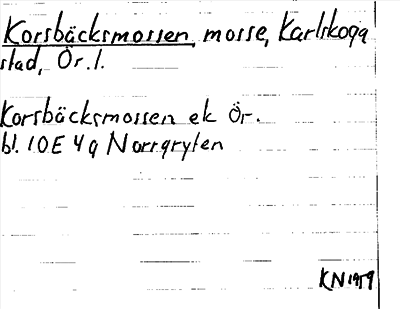 Korsbäcksmossen, mosse, Karlskoga
stad, Ör. l.
Korsbäcksmossen ek Ör.
bl. 10E 4g Norrgryten
KN 1959